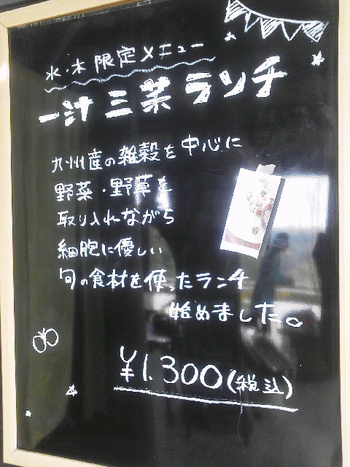 水・木限定メニュー
一汁三菜ランチ
九州産の雑穀を中心に
野菜・野草を
取り入れながら
細胞に優しい
旬の食材を使ったランチ
始めました。
¥1.300(税込)